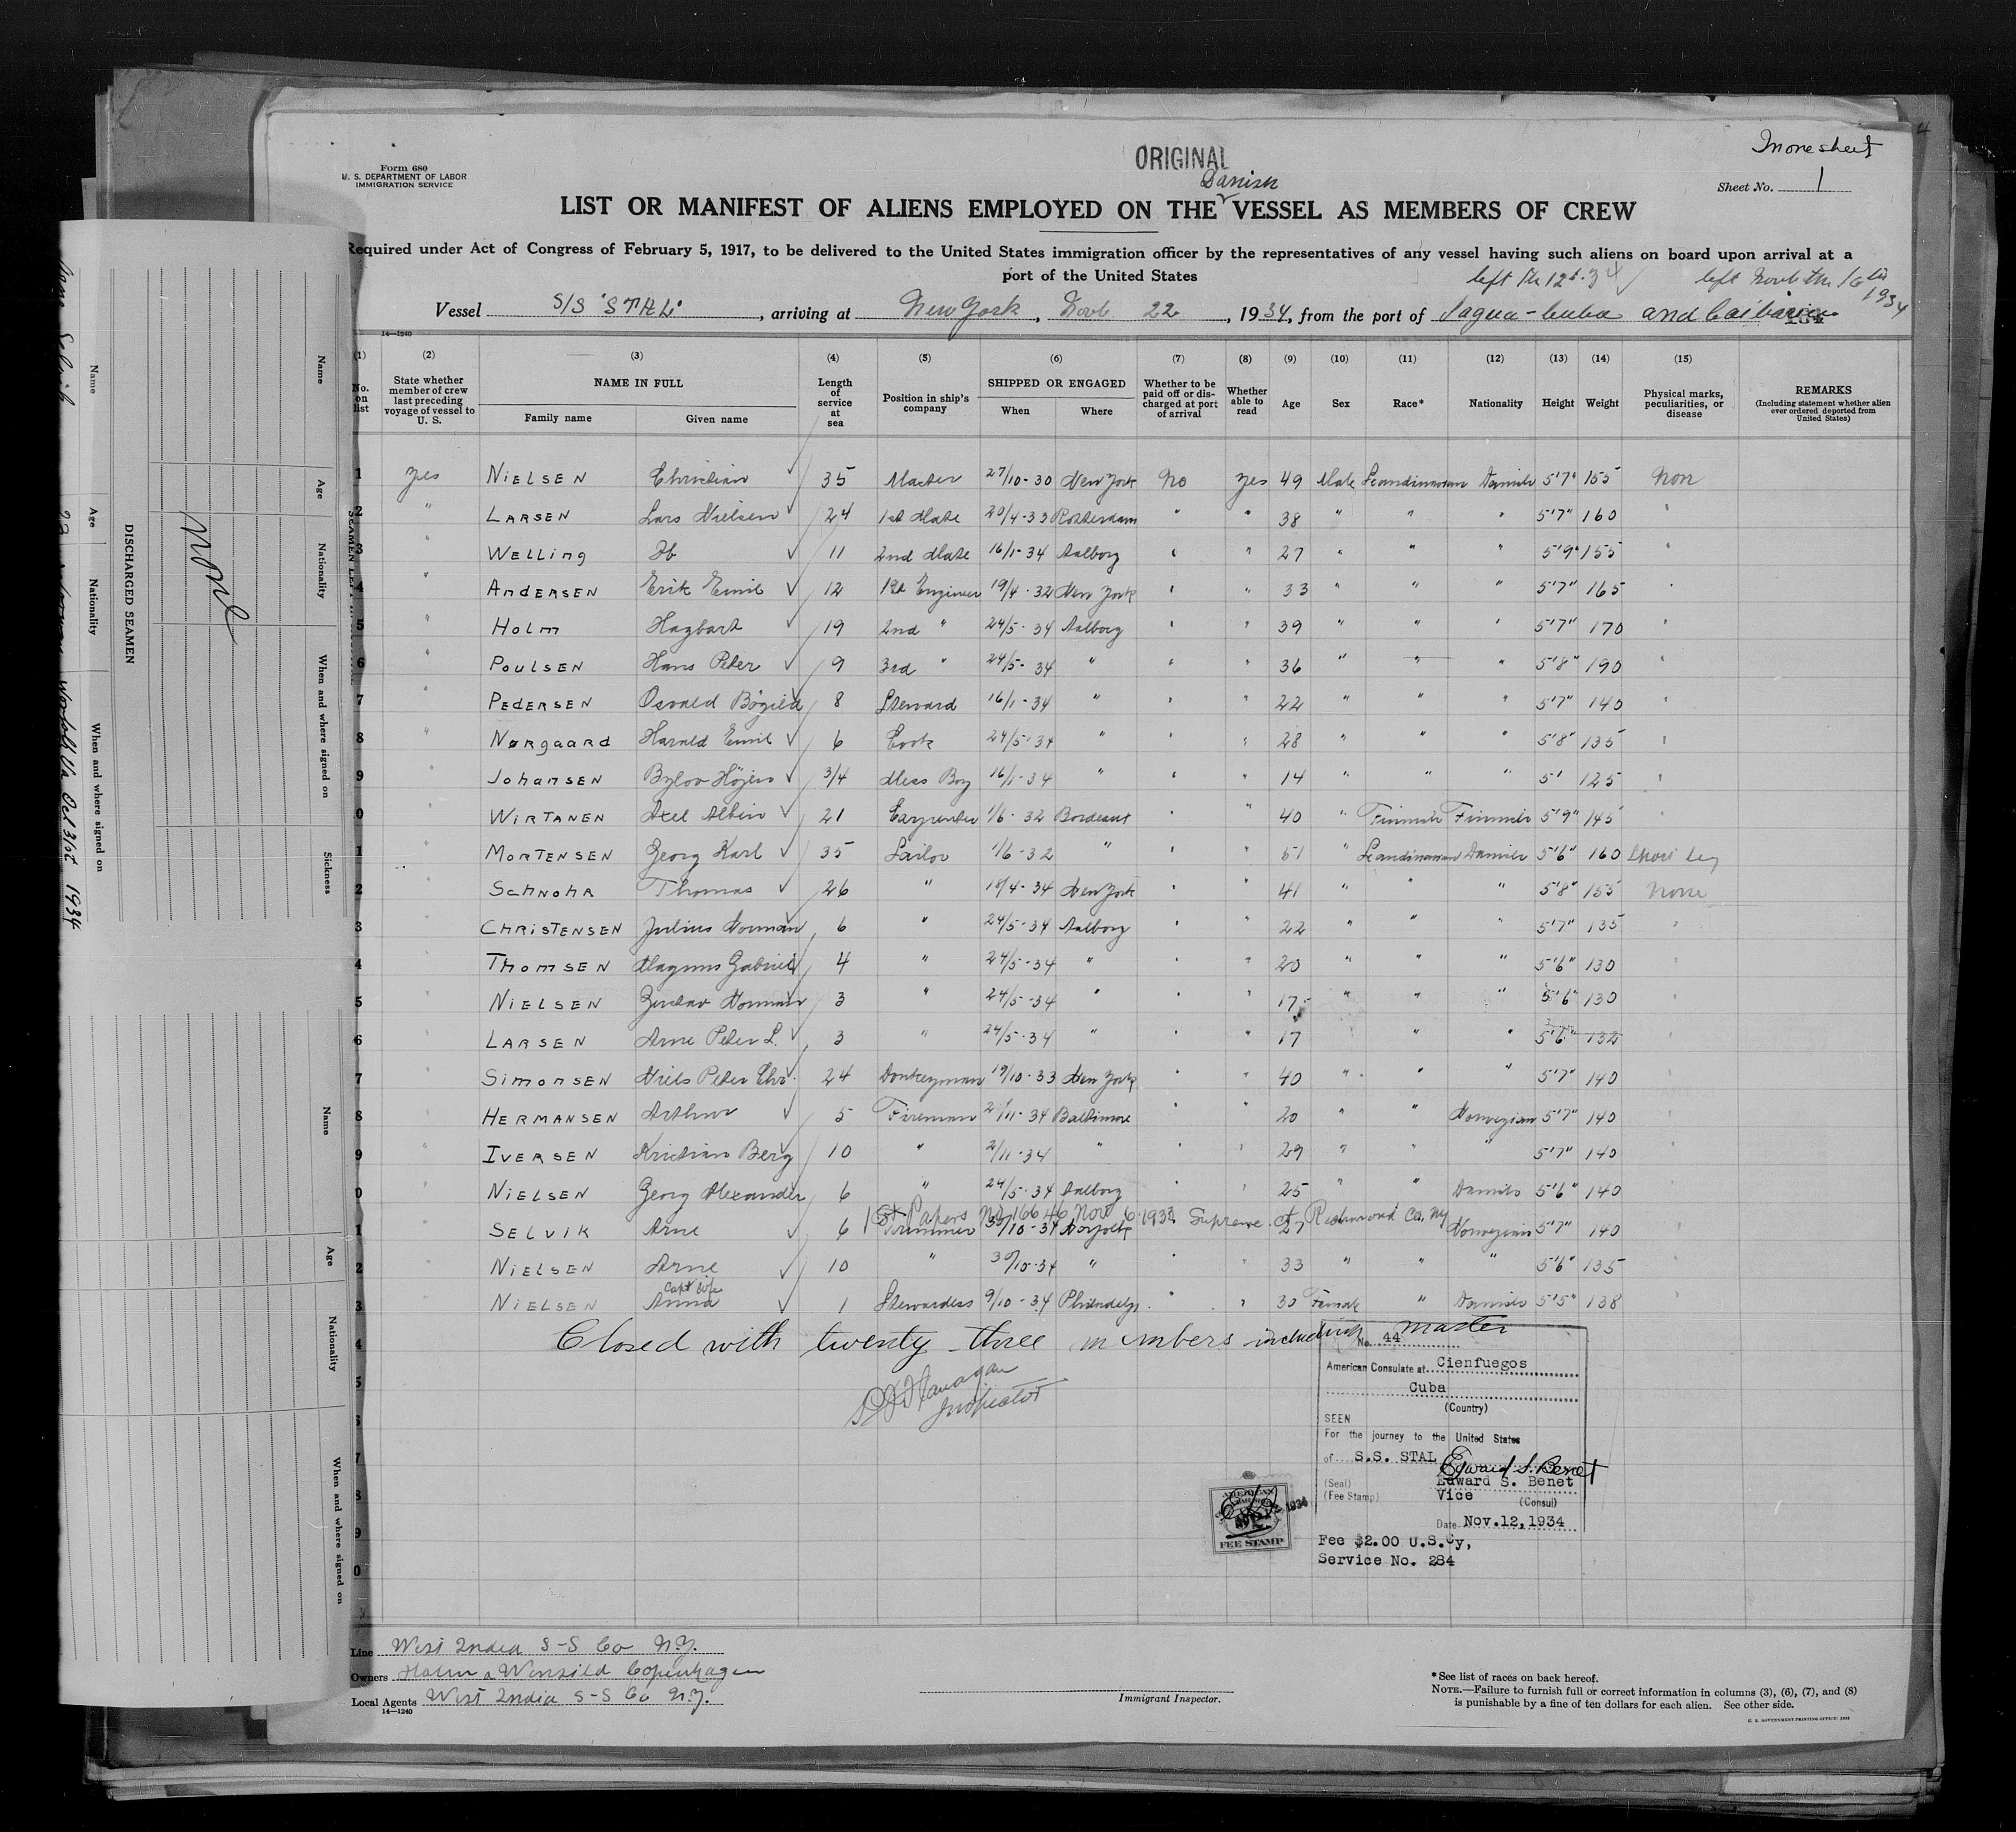 Form 680
U. S. DEPARTMENT OF LABOR
IMMIGRATION SERVICE
ORIGINAL
Sheet No. 1
Danish
LIST OR MANIFEST OF ALIENS EMPLOYED ON THE VESSEL AS MEMBERS OF CREW
Required under Act of Congress of February 5, 1917, to be delivered to the United States immigration officer by the representatives of any vessel having such aliens on board upon arrival at a
port of the United States
Vessel S/S "STAL", arriving at New York, Novb 22, 1934, from the port of Sagua-Cuba and Caibarien
14—1240
(1) (2) (3) (4) (5) (6) (7) (8) (9) (10) (11) (12) (13) (14) (15)
No. on list
State whether member of crew last preceding voyage of vessel to U. S.
NAME IN FULL
Family name
Given name
Length of service at sea
Position in ship's company
SHIPPED OR ENGAGED
When
Where
Whether to be paid off or discharged at port of arrival
Whether able to read
Age
Sex
Race*
Nationality
Height
Weight
Physical marks, peculiarities, or disease
REMARKS
(Including statement whether alien ever ordered deported from United States)
1 yes NIELSEN Christian 35 Master 27/10-30 New York No yes 49 Male Scandinavian Danish 5'7" 155 Non
2 " LARSEN Lars Nielsen 24 1st Mate 20/4-33 Rotterdam " " 38 " " " 5'7" 160 "
3 " WELLing Ib 11 2nd Mate 16/1-34 Aalborg " " 27 " " " 5'9" 155 "
4 " AndERSEN Erik Emil 12 1st Engineer 19/4-32 New York " " 33 " " " 5'7" 165 "
5 " HoLm Hagbart 19 2nd " 24/5-34 Aalborg " " 39 " " " 5'7" 170 "
6 " PoULSEN Hans Peter 9 3rd " 24/5-34 " " " 36 " " " 5'8" 190 "
7 " PEdERSEN Osvald Bøgild 8 Steward 16/1-34 " " " 22 " " " 5'7" 140 "
8 " Nørgaard Harald Emil 6 Cook 24/5-34 " " " 28 " " " 5'8" 135 "
9 " JohansEN 3/4 Mess Boy 16/1-34 " " " 14 " " " 5' 125 "
0 " WirTANEN Axel Albin 21 Carpenter 1/6-32 Bordeaux " " 40 " Finnish Finnish 5'9" 145 "
1 " MorTENSEN Georg Karl 35 Sailor 1/6-32 " " " 51 " Scandinavian Danish 5'6" 160 Short leg
2 " SchNohR Thomas 26 " 18/4-34 New York " " 41 " " " 5'8" 155 None
3 " CHRiSTENSEN Julius Norman 6 " 24/5-34 Aalborg " " 22 " " " 5'7" 135 "
4 " ThomSEN Magnus Gabriel 4 " 24/5-34 " " " 20 " " " 5'6" 130 "
5 " NiELSEN Gustav Norman 3 " 24/5-34 " " " 17 " " " 5'6" 130 "
6 " LARSEN Arne Peter L. 3 " 24/5-34 " " " 17 " " 5'6" 132
7 " SimonSEN Niels Peter Chr. 24 Donkeyman 19/10-33 New York " " 40 " " " 5'7" 140 "
8 " HERMANSEN Arthur 5 Fireman 2/11-34 Baltimore " " 20 " " Norwegian 5'7" 140 "
9 " IVERSEN Kristian Berg 10 " 2/11-34 " " " 29 " " " 5'7" 140 "
0 " NiELSEN Georg Alexander 6 " 24/5-34 Aalborg " " 25 " " Danish 5'6" 140 "
1st Papers No 16646 Nov 6 1933 Supreme Ct Richmond Co. NY
1 SELViK Arne 6 Trimmer 30/10-34 Norfolk 27 Norwegian 5'7" 140 "
2 NiELSEN Arne 10 " 30/10-34 " " " 33 " " " 5'6" 135 "
Capt Wife
3 NiELSEN Anna 1 Stewardess 9/10-34 Philadelp. " " 30 Female " Danish 5'5" 138
Closed with twenty-three members including master
Flanagan
Inspector
No. 44
American Consulate at Cienfuegos
Cuba
(Country)
SEEN
For the journey to the United States
of S.S. STAL
Edward S. Benet
(Seal) Edward S. Benet
(Fee Stamp) Vice (Consul)
Date Nov.12,1934
Fee $2.00 U.S.Cy,
Service No. 284
AMERICAN
FEE STAMP
Line West India S-S Co N.Y.
Owners Holm & Wonsild Copenhagen
Local Agents West India S-S Co N.Y.
14—1240
Immigrant Inspector.
*See list of races on back hereof.
NOTE.—Failure to furnish full or correct information in columns (3), (6), (7), and (8)
is punishable by a fine of ten dollars for each alien. See other side.
U. S. GOVERNMENT PRINTING OFFICE
DISCHARGED SEAMEN
Name
Age
Nationality
When and where signed on
Sickness
None
Arne Selvik 23 Norfolk Va Oct 31st 1934
Name
Age
Nationality
When and where signed on